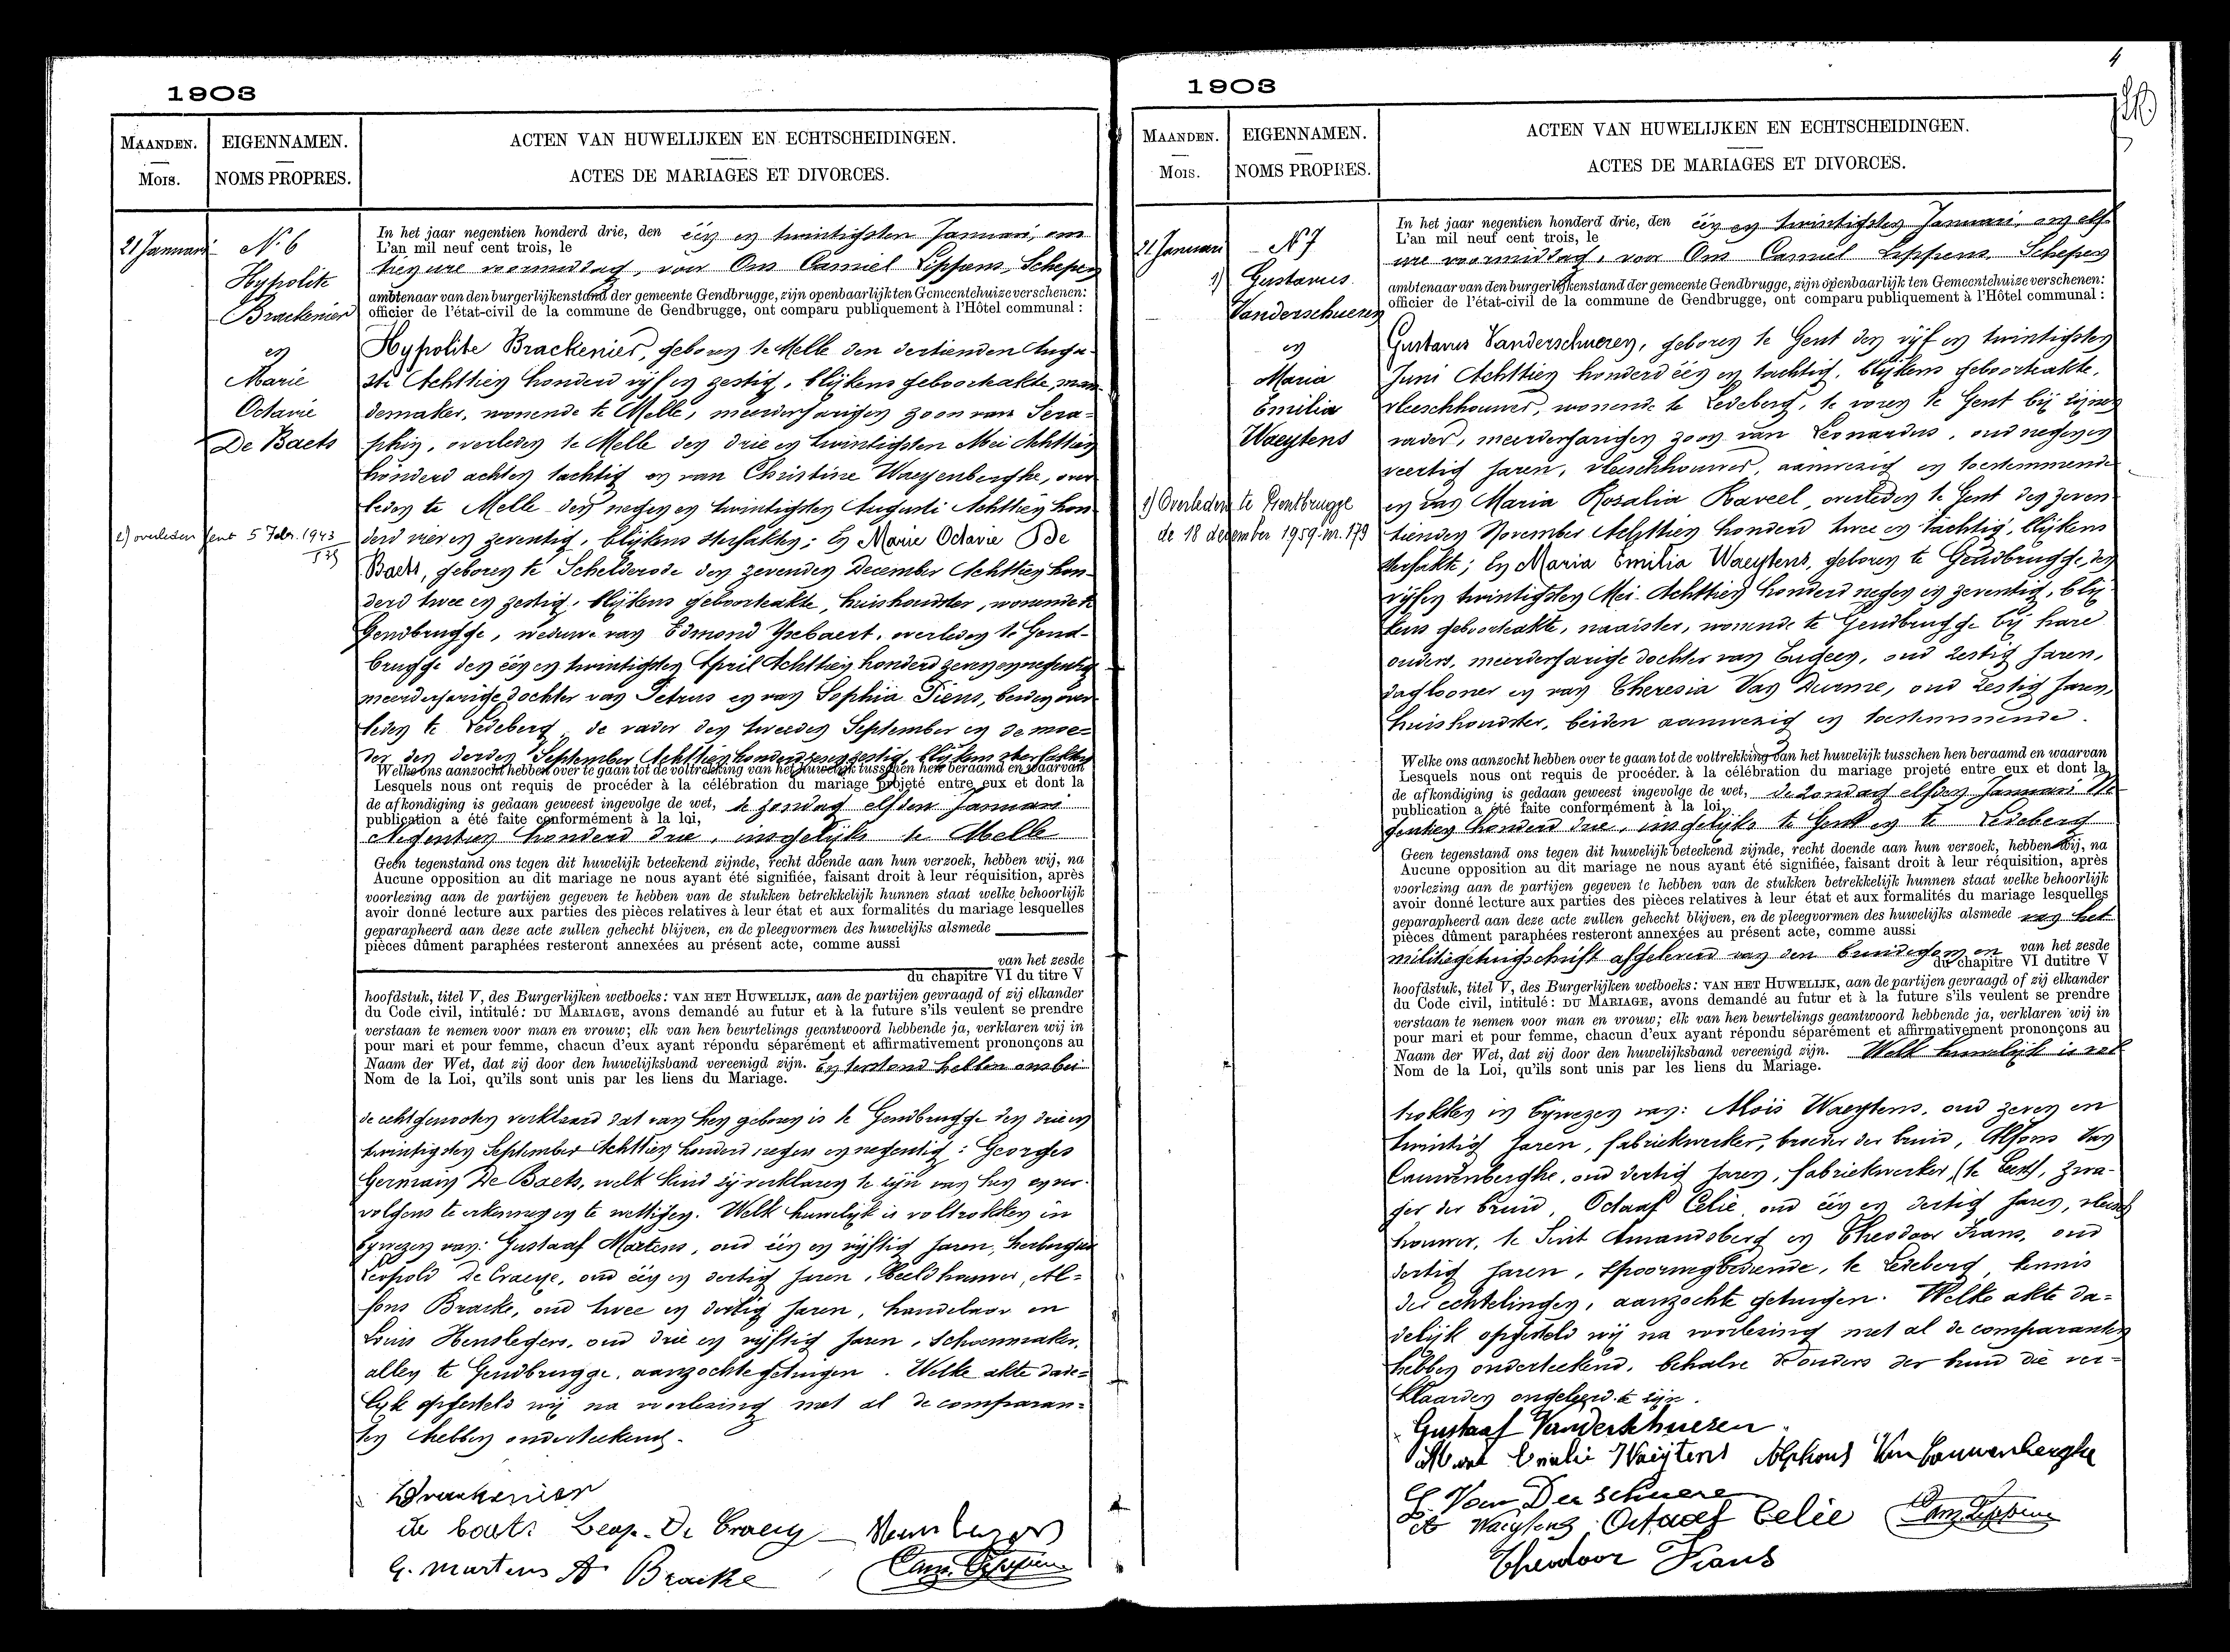 1903
MAANDEN.
Mois.
EIGENNAMEN.
NOMS PROPRES.
ACTEN VAN HUWELIJKEN EN ECHTSCHEIDINGEN.
ACTES DE MARIAGES ET DIVORCES.
21 Januari
N. 6
Hypolite
Brackenier
en
Marie
Octavie
De Baets
2) overleden Gent 5 Febr. 1943
In het jaar negentien honderd drie, den één en twintigsten Januari, om
L'an mil neuf cent trois, le
tien ure voormiddag, voor Ons Camiel Lippens, Schepen
ambtenaar van den burgerlijkenstand der gemeente Gendbrugge, zijn openbaarlijk ten Gemeentehuize verschenen:
officier de l'état-civil de la commune de Gendbrugge, ont comparu publiquement à l'Hôtel communal :
Hypolite Brackenier, geboren te Melle den dertienden Augu-
sti Achttien honderd vijf en zestig, blijkens geboorteakte, man-
demaker, wonende te Melle, meerderjarigen zoon van Sera-
phin, overleden te Melle den drie en twintigsten Mei Achttien
honderd achten tachtig en van Christine Waeyenberghe, over-
leden te Melle den negen en twintigsten Augusti Achttien hon-
derd vier en zeventig, blijkens sterfakten; En Marie Octavie De
Baets, geboren te Schelderode den zevenden December Achttien hon-
derd twee en zestig, blijkens geboorteakte, huishoudster, wonende te
Gendbrugge, weduwe van Edmond Ysebaert, overleden te Gend-
brugge den één en twintigsten April Achttien honderd zeven en negentig
meerderjarige dochter van Petrus en van Sophia Tiens, beiden over-
leden te Ledeberg, de vader den tweeden September en de moe-
der den derden September Achttien honderd zes en zestig, blijkens sterfakten
Welke ons aanzocht hebben over te gaan tot de voltrekking van het huwelijk tusschen hen beraamd en waarvan
Lesquels nous ont requis de procéder à la célébration du mariage projeté entre eux et dont la
de afkondiging is gedaan geweest ingevolge de wet, te zondag elfden Januari
publication a été faite conformément à la loi,
Negentien honderd drie, insgelijks te Melle
Geen tegenstand ons tegen dit huwelijk beteekend zijnde, recht doende aan hun verzoek, hebben wij, na
Aucune opposition au dit mariage ne nous ayant été signifiée, faisant droit à leur réquisition, après
voorlezing aan de partijen gegeven te hebben van de stukken betrekkelijk hunnen staat welke behoorlijk
avoir donné lecture aux parties des pièces relatives à leur état et aux formalités du mariage lesquelles
geparapheerd aan deze acte zullen gehecht blijven, en de pleegvormen des huwelijks alsmede
pièces dûment paraphées resteront annexées au présent acte, comme aussi
van het zesde
du chapitre VI du titre V
hoofdstuk, titel V, des Burgerlijken wetboeks: VAN HET HUWELIJK, aan de partijen gevraagd of zij elkander
du Code civil, intitulé: DU MARIAGE, avons demandé au futur et à la future s'ils veulent se prendre
verstaan te nemen voor man en vrouw; elk van hen beurtelings geantwoord hebbende ja, verklaren wij in
pour mari et pour femme, chacun d'eux ayant répondu séparément et affirmativement prononçons au
Naam der Wet, dat zij door den huwelijksband vereenigd zijn. En terstond hebben ons bei-
Nom de la Loi, qu'ils sont unis par les liens du Mariage.
de echtgenooten verklaard dat van hen geboren is te Gendbrugge den drie en
twintigsten September Achttien honderd negen en negentig: Georges
Germain De Baets, welk kind zij verklaren te zijn van hen en ver-
volgens te erkennen en te wettigen. Welk huwelijk is voltrokken in
bijwezen van: Gustaaf Martens, oud één en vijftig jaren, herbergier
Leopold De Craeye, oud één en dertig jaren, beeldhouwer, Al-
fons Bracke, oud twee en dertig jaren, handelaar en
Louis Henslegers, oud drie en vijftig jaren, schoenmaker,
allen te Gendbrugge, aanzochte getuigen. Welke akte dade-
lijk opgesteld wij na voorlezing met al de comparan-
ten hebben onderteekend.
Brackenier
de baets Leop. De Craeye
G. Martens A Bracke
1903
4
MAANDEN.
Mois.
EIGENNAMEN.
NOMS PROPRES.
ACTEN VAN HUWELIJKEN EN ECHTSCHEIDINGEN.
ACTES DE MARIAGES ET DIVORCES.
21 Januari
N 7
1) Gustavus
Vanderschueren
en
Maria
Emilia
Waeytens
1) Overleden te Gentbrugge
de 18 december 1959 nr. 179
In het jaar negentien honderd drie, den één en twintigsten Januari, om elf
L'an mil neuf cent trois, le
ure voormiddag, voor Ons Camiel Lippens, Schepen
ambtenaar van den burgerlijkenstand der gemeente Gendbrugge, zijn openbaarlijk ten Gemeentehuize verschenen:
officier de l'état-civil de la commune de Gendbrugge, ont comparu publiquement à l'Hôtel communal :
Gustavus Vanderschueren, geboren te Gent den vijf en twintigsten
Juni Achttien honderd één en tachtig, blijkens geboorteakte,
vleeschhouwer, wonende te Ledeberg, te voren te Gent bij zijnen
vader, meerderjarigen zoon van Leonardus, oud negen en
veertig jaren, vleeschhouwer, aanwezig en toestemmende
en van Maria Rosalia Raveel, overleden te Gent den zeven-
tienden November Achttien honderd twee en tachtig, blijkens
sterfakte; En Maria Emilia Waeytens, geboren te Gendbrugge, den
vijf en twintigsten Mei Achttien honderd negen en zeventig, blij-
kens geboorteakte, naaister, wonende te Gendbrugge bij hare
ouders, meerderjarige dochter van Eugeen, oud zestig jaren,
daglooner en van Theresia Van Durme, oud zestig jaren,
huishoudster, beiden aanwezig en toestemmende.
Welke ons aanzocht hebben over te gaan tot de voltrekking van het huwelijk tusschen hen beraamd en waarvan
Lesquels nous ont requis de procéder à la célébration du mariage projeté entre eux et dont la
de afkondiging is gedaan geweest ingevolge de wet, de zondag elfden Januari Ne-
publication a été faite conformément à la loi,
gentien honderd drie, insgelijks te Gent en te Ledeberg
Geen tegenstand ons tegen dit huwelijk beteekend zijnde, recht doende aan hun verzoek, hebben wij, na
Aucune opposition au dit mariage ne nous ayant été signifiée, faisant droit à leur réquisition, après
voorlezing aan de partijen gegeven te hebben van de stukken betrekkelijk hunnen staat welke behoorlijk
avoir donné lecture aux parties des pièces relatives à leur état et aux formalités du mariage lesquelles
geparapheerd aan deze acte zullen gehecht blijven, en de pleegvormen des huwelijks alsmede van het
pièces dûment paraphées resteront annexées au présent acte, comme aussi
militiegetuigschrift afgeleverd van den bruidegom en van het zesde
du chapitre VI du titre V
hoofdstuk, titel V, des Burgerlijken wetboeks: VAN HET HUWELIJK, aan de partijen gevraagd of zij elkander
du Code civil, intitulé: DU MARIAGE, avons demandé au futur et à la future s'ils veulent se prendre
verstaan te nemen voor man en vrouw; elk van hen beurtelings geantwoord hebbende ja, verklaren wij in
pour mari et pour femme, chacun d'eux ayant répondu séparément et affirmativement prononçons au
Naam der Wet, dat zij door den huwelijksband vereenigd zijn. Welk huwelijk is vol-
Nom de la Loi, qu'ils sont unis par les liens du Mariage.
trokken in bijwezen van: Aloïs Waeytens, oud zeven en
twintig jaren, fabriekwerker, broeder der bruid, Alfons Van
Cauwenberghe, oud dertig jaren, fabriekwerker, (te Gent), zwa-
ger der bruid, Octaaf Celie, oud één en dertig jaren, vleesch
houwer, te Sint Amandsberg en Theodoor Frans, oud
dertig jaren, spoorwegbediende, te Ledeberg, kennis
der echtelingen, aanzochte getuigen. Welke akte da-
delijk opgesteld wij na voorlezing met al de comparanten
hebben onderteekend, behalve de ouders der bruid die ver-
klaarden ongeleerd te zijn.
Gustaaf Vanderschueren
Emilie Waeijtens Alphons Van Cauwenberghe
Van Der schuere
Waeytens Octaaf Celie
Theodoor Frans